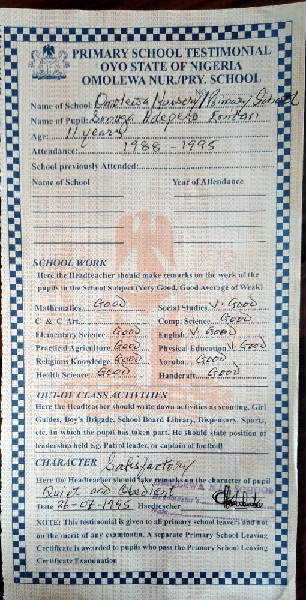 PRIMARY SCHOOL TESTIMONIAL
OYO STATE OF NIGERIA
OMOLEWA NUR./PRY. SCHOOL
Name of School: Omolewa Nursery/Primary School
Name of Pupil:
Age: 11 years
Attendance: 1988 - 1995
School previously Attended:
Name of School Year of Attendance
SCHOOL WORK
Here the Headteacher should make remarks on the work of the
pupils in the School Subject (Very Good, Good Average of Weak)
Mathematics GOOD Social Studies V. Good
C & C Art Comp. Science Good
Elementary Science Good English V. Good
Practical Agriculture Good Physical Education V Good
Religious Knowledge Good Yoruba Good
Health Science Good Handcraft Good
OUT-OF CLASS ACTIVITIES
Here the Headteacher should write down activities as scouting, Girl
Guides, Boy's Brigade, School Board Library, Dispensary, Sports,
etc, in which the pupil has taken part. He should state position of
leadership held e.g. Patrol leader or captain of football
CHARACTER Satisfactory
Here the Headteacher should make remarks on the character of pupil
Quiet and Obedient
Date 26-07-1995 Headteacher
NOTE: This testimonial is given to all primary school leavers and not
on the merit of any examination. A separate Primary School Leaving
Certificate is awarded to pupils who pass the Primary School Leaving
Certificate Examination